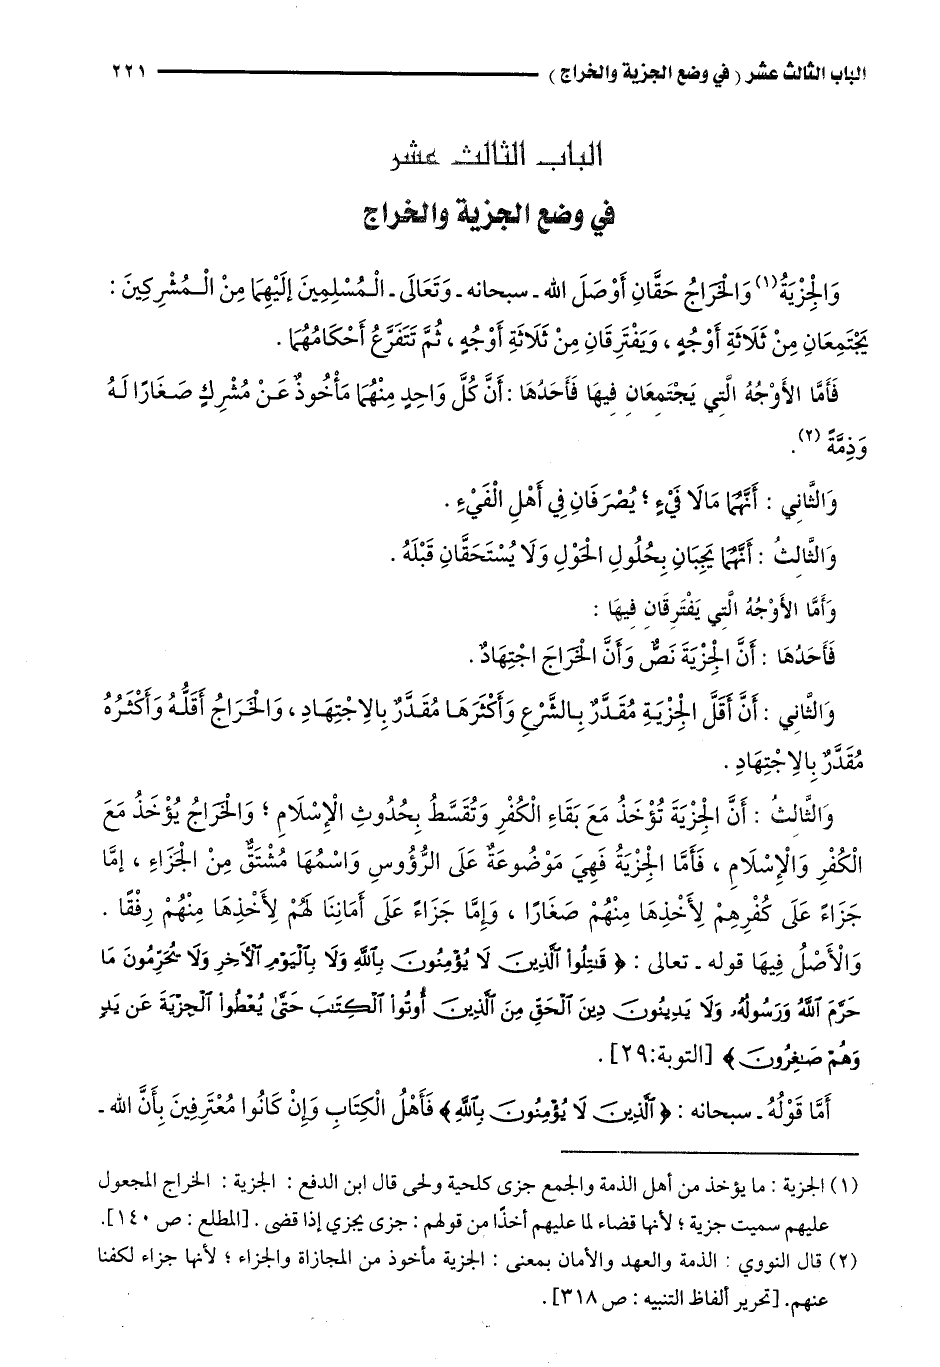 الباب الثالث عشر ( في وضع الجزية والخراج ) ٢٢١
الباب الثالث عشر
في وضع الجزية والخراج
وَالْجِزْيَةُ(١) وَالْخَرَاجُ حَقَّانِ أَوْصَلَ الله ـ سبحانه ـ وَتَعَالَى ـ الْمُسْلِمِينَ إلَيْهِمَا مِنْ الْمُشْرِكِينَ :
يَجْتَمِعَانِ مِنْ ثَلَاثَةِ أَوْجُهٍ ، وَيَفْتَرِقَانِ مِنْ ثَلَاثَةِ أَوْجُهٍ ، ثُمَّ تَتَفَرَّعُ أَحْكَامُهُمَا .
فَأَمَّا الأَوْجُهُ الَّتِي يَجْتَمِعَانِ فِيهَا فَأَحَدُهَا : أَنَّ كُلَّ وَاحِدٍ مِنْهُمَا مَأْخُوذٌ عَنْ مُشْرِكٍ صَغَارًا لَهُ
وَذِمَّةً (٢).
وَالثَّانِي : أَنَّهُمَا مَالَا فَيْءٍ ؛ يُصْرَفَانِ فِي أَهْلِ الْفَيْءِ .
وَالثَّالِثُ : أَنَّهُمَا يَجِبَانِ بِحُلُولِ الْحَوْلِ وَلَا يُسْتَحَقَّانِ قَبْلَهُ .
وَأَمَّا الأَوْجُهُ الَّتِي يَفْتَرِقَانِ فِيهَا :
فَأَحَدُهَا : أَنَّ الْجِزْيَةَ نَصٌّ وَأَنَّ الْخَرَاجَ اجْتِهَادٌ .
وَالثَّانِي : أَنَّ أَقَلَّ الْجِزْيَةِ مُقَدَّرٌ بِالشَّرْعِ وَأَكْثَرَهَا مُقَدَّرٌ بِالِاجْتِهَادِ ، وَالْخَرَاجُ أَقَلُّهُ وَأَكْثَرُهُ
مُقَدَّرٌ بِالِاجْتِهَادِ .
وَالثَّالِثُ : أَنَّ الْجِزْيَةَ تُؤْخَذُ مَعَ بَقَاءِ الْكُفْرِ وَتُقَسَّطُ بِحُدُوثِ الْإِسْلَامِ ؛ وَالْخَرَاجُ يُؤْخَذُ مَعَ
الْكُفْرِ وَالْإِسْلَامِ ، فَأَمَّا الْجِزْيَةُ فَهِيَ مَوْضُوعَةٌ عَلَى الرُّؤُوسِ وَاسْمُهَا مُشْتَقٌّ مِنْ الْجَزَاءِ ، إمَّا
جَزَاءً عَلَى كُفْرِهِمْ لِأَخْذِهَا مِنْهُمْ صَغَارًا ، وَإِمَّا جَزَاءً عَلَى أَمَانِنَا لَهُمْ لِأَخْذِهَا مِنْهُمْ رِفْقًا .
وَالْأَصْلُ فِيهَا قوله ـ تعالى : ﴿ قَٰتِلُوا۟ ٱلَّذِينَ لَا يُؤْمِنُونَ بِٱللَّهِ وَلَا بِٱلْيَوْمِ ٱلْآخِرِ وَلَا يُحَرِّمُونَ مَا
حَرَّمَ ٱللَّهُ وَرَسُولُهُۥ وَلَا يَدِينُونَ دِينَ ٱلْحَقِّ مِنَ ٱلَّذِينَ أُوتُوا۟ ٱلْكِتَٰبَ حَتَّىٰ يُعْطُوا۟ ٱلْجِزْيَةَ عَن يَدٍ
وَهُمْ صَٰغِرُونَ ﴾ [التوبة:٢٩] .
أَمَّا قَوْلُهُ ـ سبحانه : ﴿ ٱلَّذِينَ لَا يُؤْمِنُونَ بِٱللَّهِ ﴾ فَأَهْلُ الْكِتَابِ وَإِنْ كَانُوا مُعْتَرِفِينَ بِأَنَّ الله ـ
(١) الجزية : ما يؤخذ من أهل الذمة والجمع جزى كلحية ولحى قال ابن الدفع : الجزية : الخراج المجعول
عليهم سميت جزية ؛ لأنها قضاء لما عليهم أخذًا من قولهم : جزى يجزي إذا قضى . [المطلع : ص ١٤٠].
(٢) قال النووي : الذمة والعهد والأمان بمعنى : الجزية مأخوذ من المجازاة والجزاء ؛ لأنها جزاء لكفنا
عنهم. [تحرير ألفاظ التنبيه : ص ٣١٨].